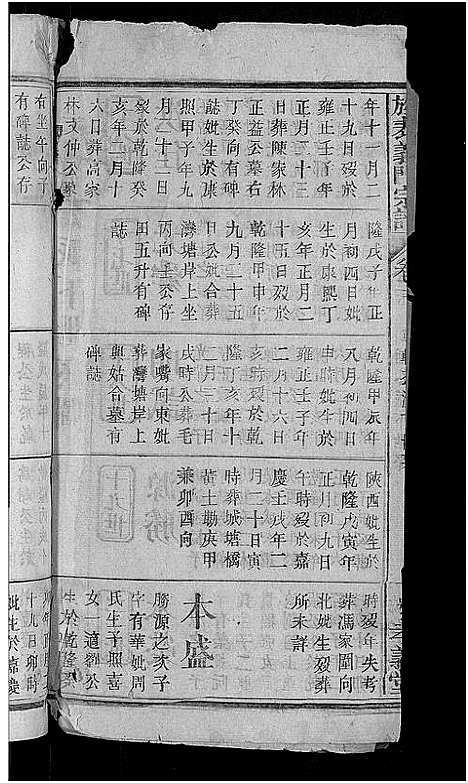 年十一月二
十九日歿於
雍正壬子年
正月二十三
旧葬陳家林
正益公墓右
丁癸向有碑
誌妣生於康
熙甲子年九
月二十二日
歿於乾隆癸
亥年二月十
六日葬高家
林文仲公墓
右坐午向子
有碑誌公存
隆戊子年正
月初四日妣
生於康熙丁
亥年正月二
十五日歿於
乾隆甲申年
九月二十五
日公妣合葬
灣塘岸上坐
丙向壬公存
田五升有碑
誌
乾隆甲辰年
八月初四日
申時妣生於
雍正壬子年
二月十六日
亥時歿於乾
隆丁亥年十
二月三十日
戌時公葬毛
家嘴向東妣
葬灣塘岸上
與姑合墓有
碑誌
陝西妣生於
乾隆戊寅年
正月初九日
午時歿於嘉
慶壬戌年二
月二十日寅
時葬城塘橋
黃土坳庚甲
兼卯酉向
時歿年失考
葬馮家園向
北妣生歿葬
所未詳
本盛
勝源之次子
字有華妣周
氏生子照喜
女一適劉公
生於乾隆癸
妣生於嘉慶
十九日卯時